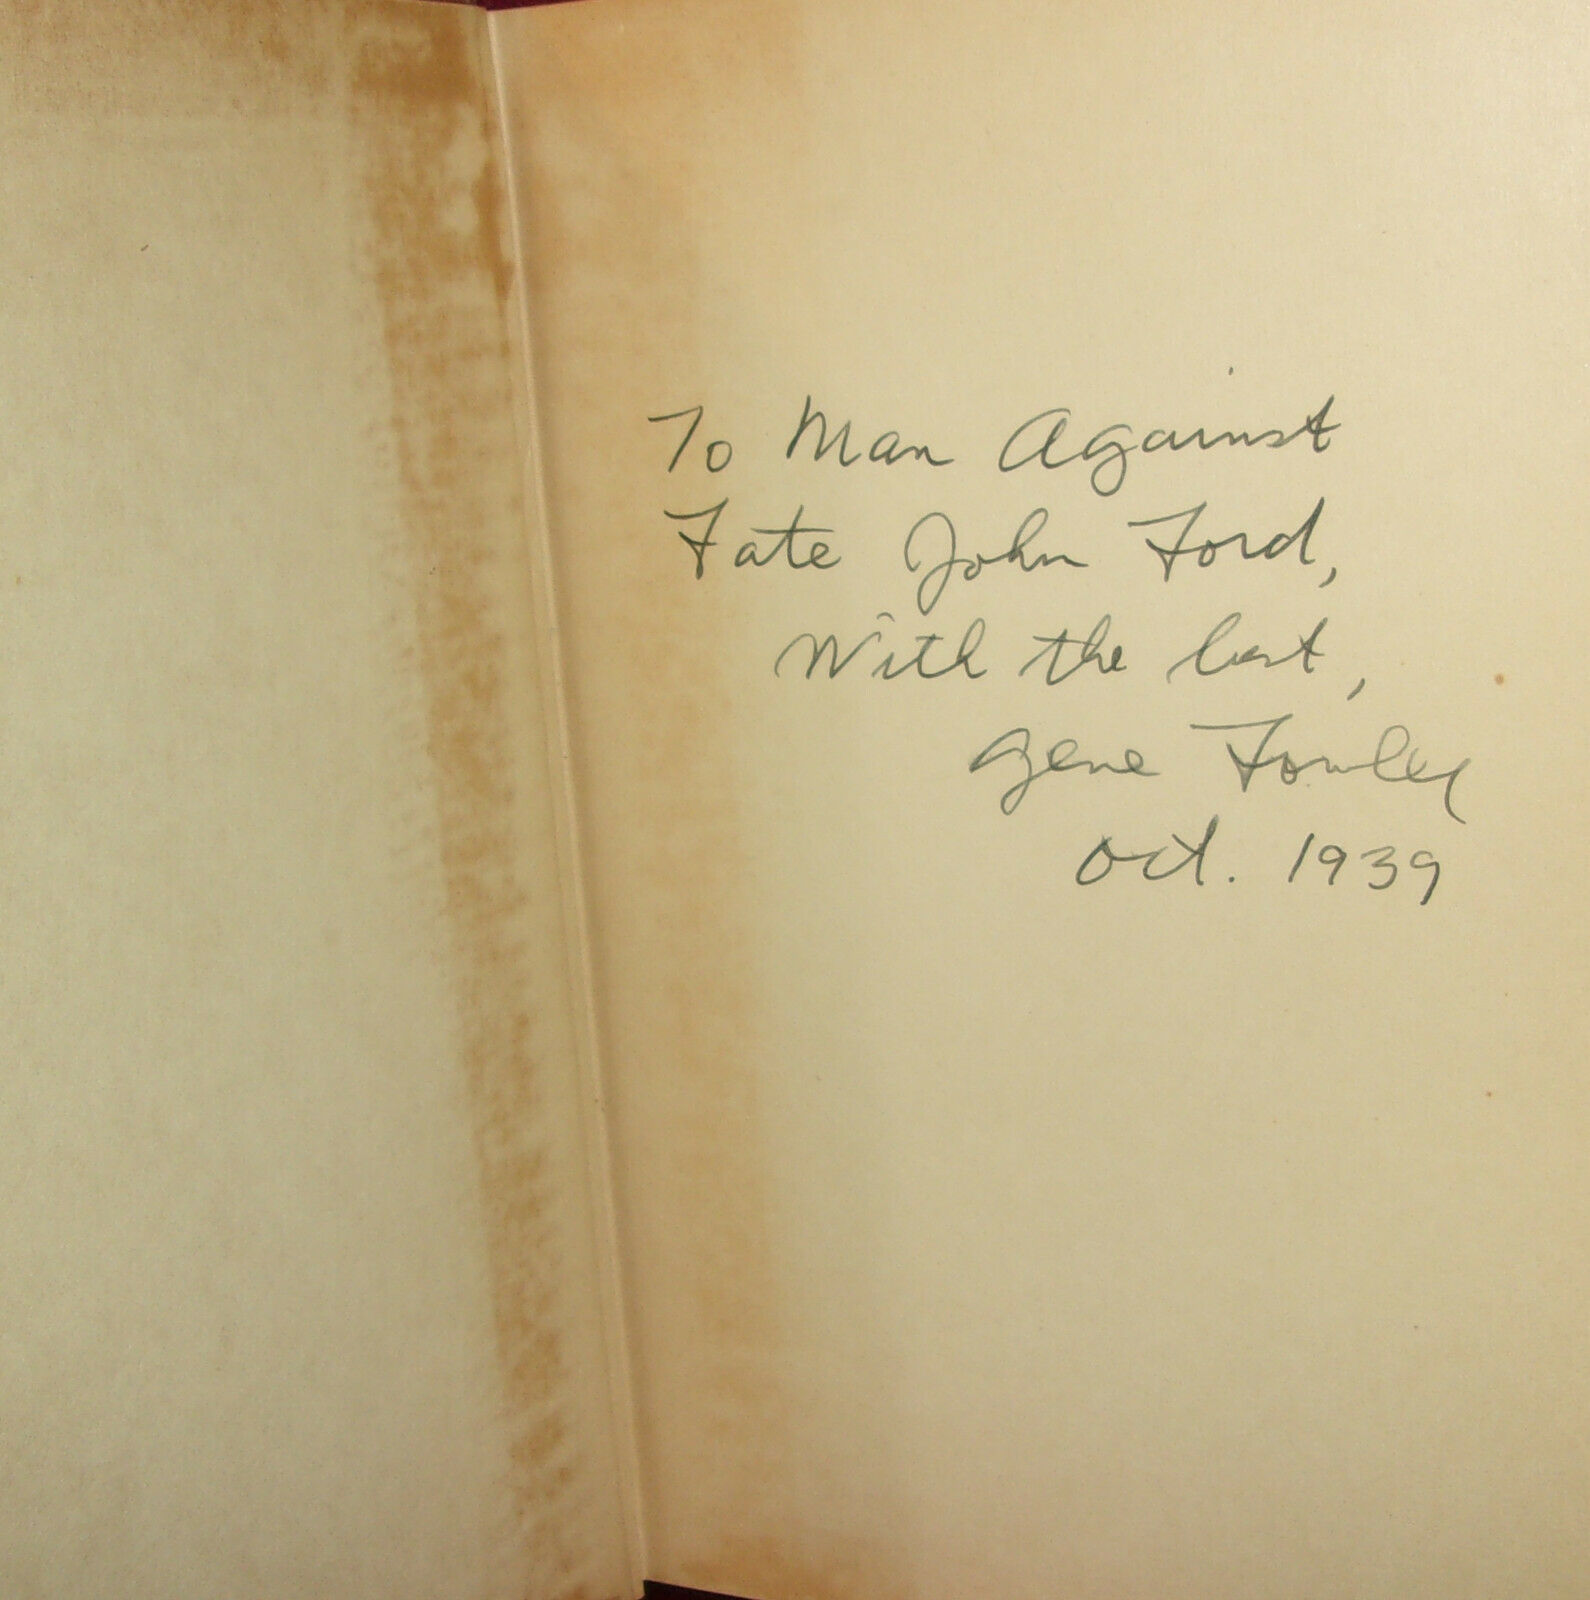 To Man Against
Fate John Ford,
With the best,
Gene Fowler
Oct. 1939